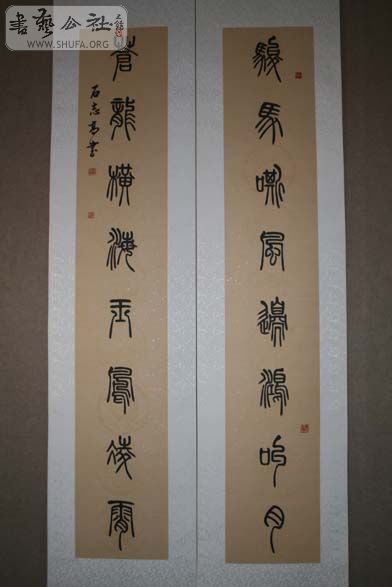 書藝公社
WWW.SHUFA.ORG
駿馬嘶風邊鴻叫月
蒼龍橫海玉鳳凌霄
石志高書